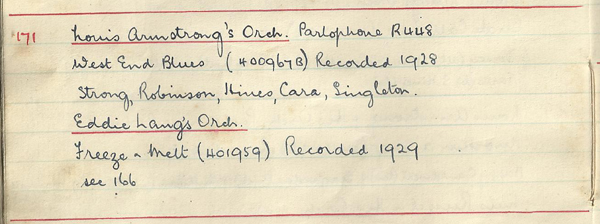 171 Louis Armstrong's Orch. Parlophone R448
West End Blues (400967B) Recorded 1928
Strong, Robinson, Hines, Cara, Singleton.
Eddie Lang's Orch.
Freeze a Melt (401959) Recorded 1929
see 166